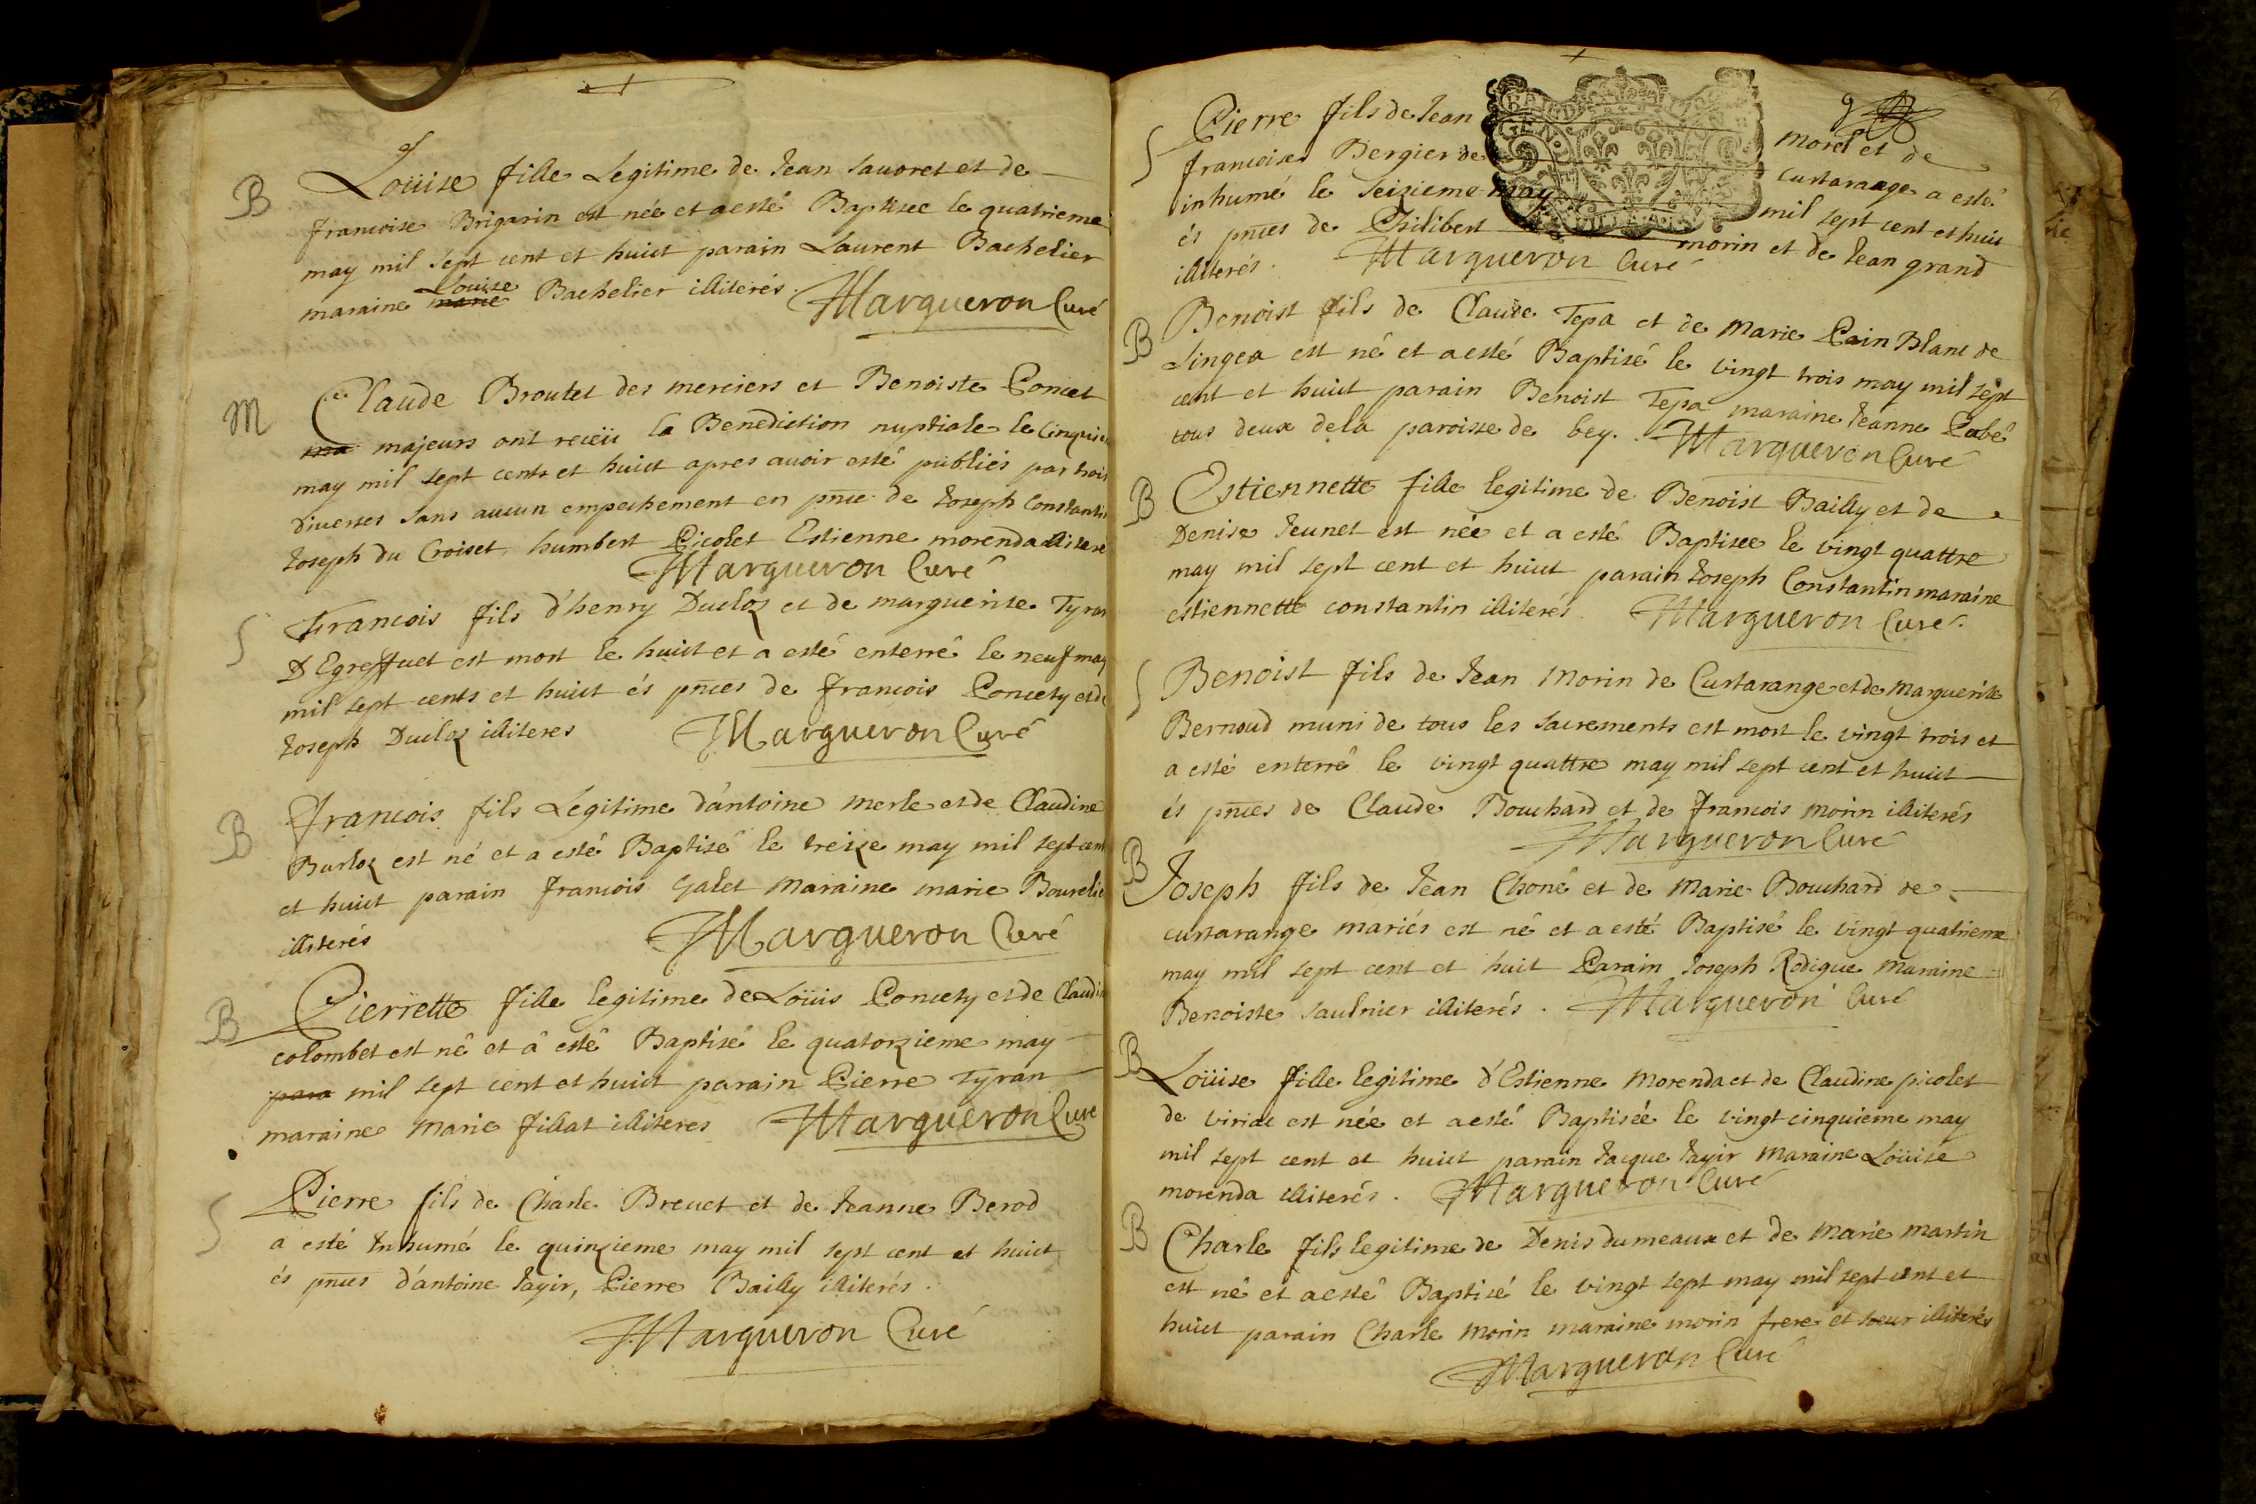 B Loüise fille Legitime de Jean Sauoret et de
francoise Brigarin est née et a esté Baptisee le quatrieme
may mil sept cent et huict parain Laurent Bachelier
Louise
maraine marie Bachelier illiterés. Margueron Curé
M Claude Broutet des merciers et Benoiste Poncet
ma majeurs ont receü la Benediction nuptiale le Cinquie
may mil sept cents et huict apres auoir esté publiés par trois
diuerses sans aucun empechement en pnce de Joseph Constantin
Joseph du Croiset humbert Picolet Estienne morenda illiteré
Margueron Curé
S Francois fils d'henry Ducloz et de marguerite Tyran
D'Egreffuet est mort le huict et a esté enterré le neuf may
mil sept cents et huict és pnces de francois Poncety et de
Joseph Ducloz illiteres Margueron Curé
B francois fils Legitime d'antoine merle et de Claudine
Burloz est né et a esté Baptisé le treize may mil sept cent
et huict parain francois Galet maraine marie Bourelie
illiterés Margueron Curé
B Pierrette fille legitime de Loüis Poncety et de Claudin
colombet est né et â esté Baptisé le quatorzieme may
para mil sept cent et huict parain Pierre Tyran
maraine marie fillat illiteres Margueron Cure
S Pierre fils de Charle Breuet et de Jeanne Berod
a esté Inhumé le quinzieme may mil sept cent et huict
és pnces d'antoine Jayir, Pierre Bailly illiterés.
Margueron Curé
9
S Pierre fils de Jean morel et de
francoise Bergier de Curtarange a esté
inhumé le seizieme may mil sept cent et huit
és pnces de Philibert morin et de Jean grand
illiterés. Margueron Curé
B Benoist fils de Claude Tepa et de Marie Pain Blanc de
Singea est né et a esté Baptisé le vingt trois may mil sept
cent et huict parain Benoist Tepa maraine Jeanne Labé
tous deux de la paroisse de bey. Margueron Curé
B Estiennette fille legitime de Benoist Bailly et de
Denise Jeunet est née et a esté Baptisee le vingt quattre
may mil sept cent et huict parain Joseph Constantin maraine
estiennette constantin illiterés Margueron Curé.
S Benoist fils de Jean Morin de Curtarange et de Marguerite
Bernoud muni de tous les sacrements est mort le vingt trois et
a esté enterré le vingt quattre may mil sept cent et huict
és pnces de Claude Bouchard et de francois morin illiterés
Margueron Curé
B Joseph fils de Jean Choné et de Marie Bouchard de
curtarange mariés est né et a esté Baptisé le vingt quatrieme
may mil sept cent et huit Parain Joseph Rodigue Maraine
Benoiste Saulnier illiterés. Margueron Curé
B Loüise fille legitime d'Estienne Morenda et de Claudine picolet
de viriac est née et a esté Baptisée le vingt cinquieme may
mil sept cent et huict parain Jacque Jayir Maraine Loüise
morenda illiterés. Margueron Curé
B Charle fils legitime de Denis dumeaux et de Marie Martin
est né et a esté Baptisé le vingt sept may mil sept cent et
huict parain Charle Morin maraine morin frere et soeur illiterés
Margueron Curé